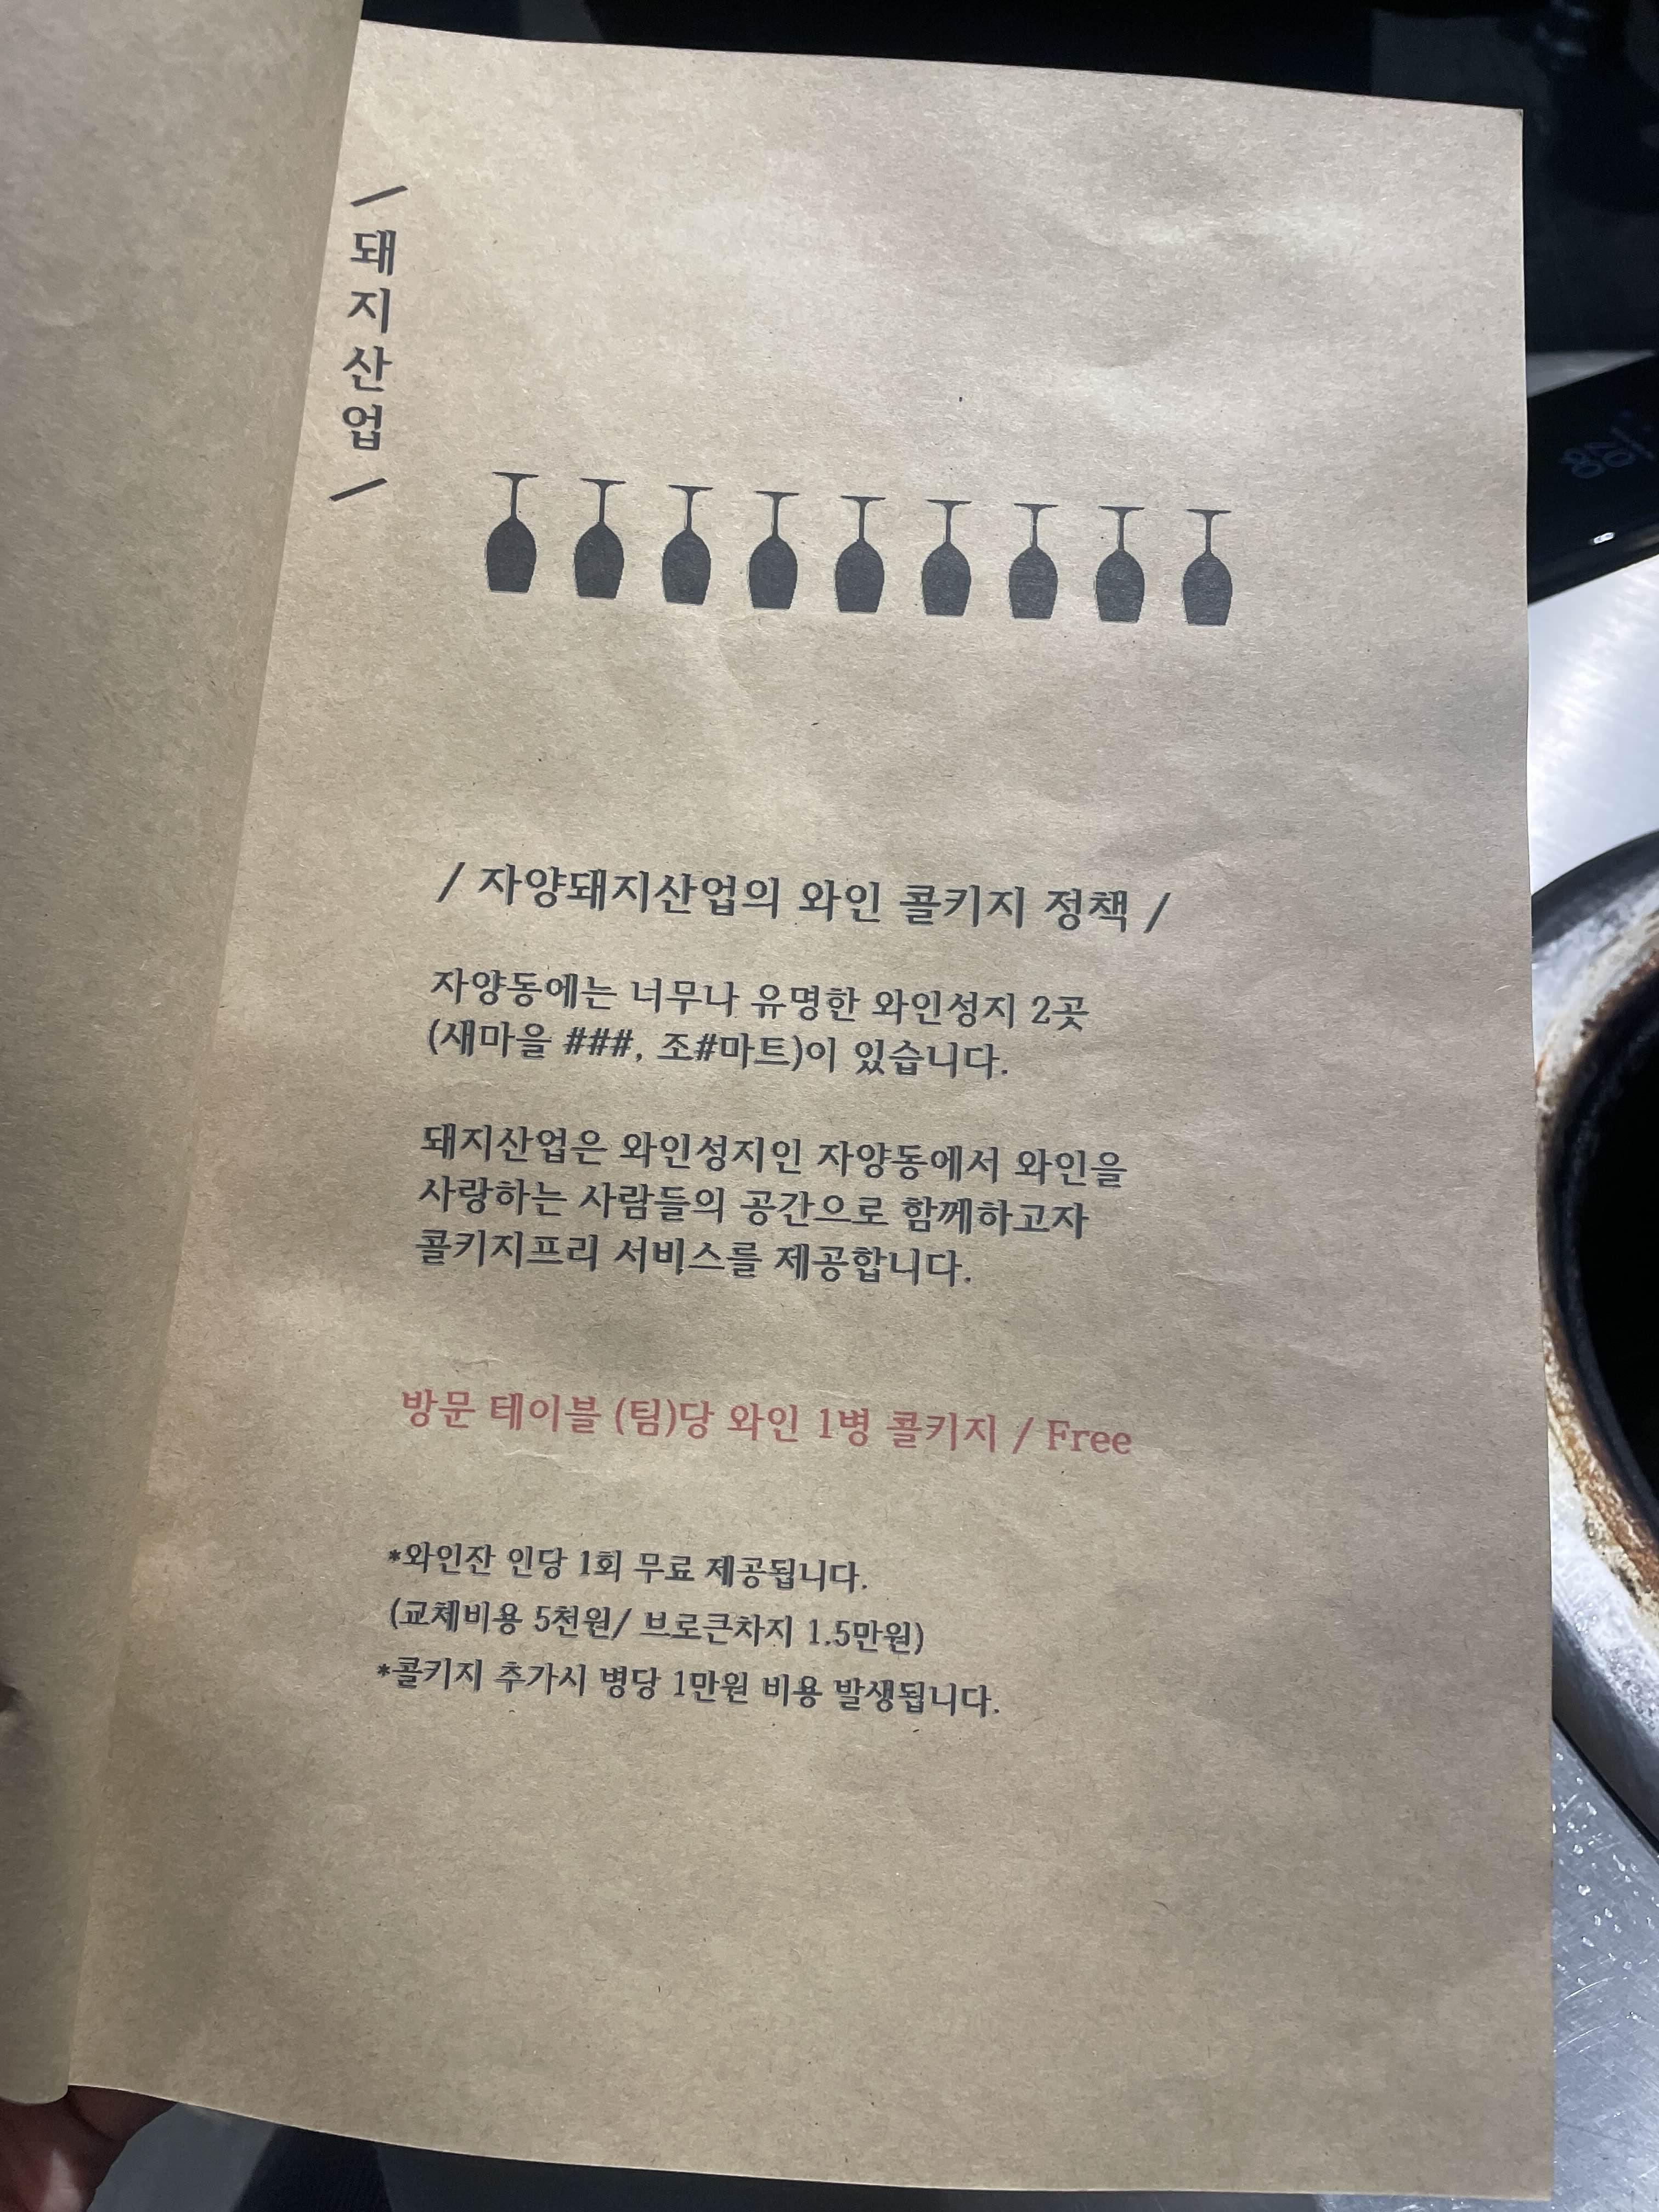 / 돼지산업 /
/ 자양돼지산업의 와인 콜키지 정책 /
자양동에는 너무나 유명한 와인성지 2곳
(새마을 ###, 조#마트)이 있습니다.
돼지산업은 와인성지인 자양동에서 와인을
사랑하는 사람들의 공간으로 함께하고자
콜키지프리 서비스를 제공합니다.
방문 테이블 (팀)당 와인 1병 콜키지 / Free
*와인잔 인당 1회 무료 제공됩니다.
(교체비용 5천원/ 브로큰차지 1.5만원)
*콜키지 추가시 병당 1만원 비용 발생됩니다.